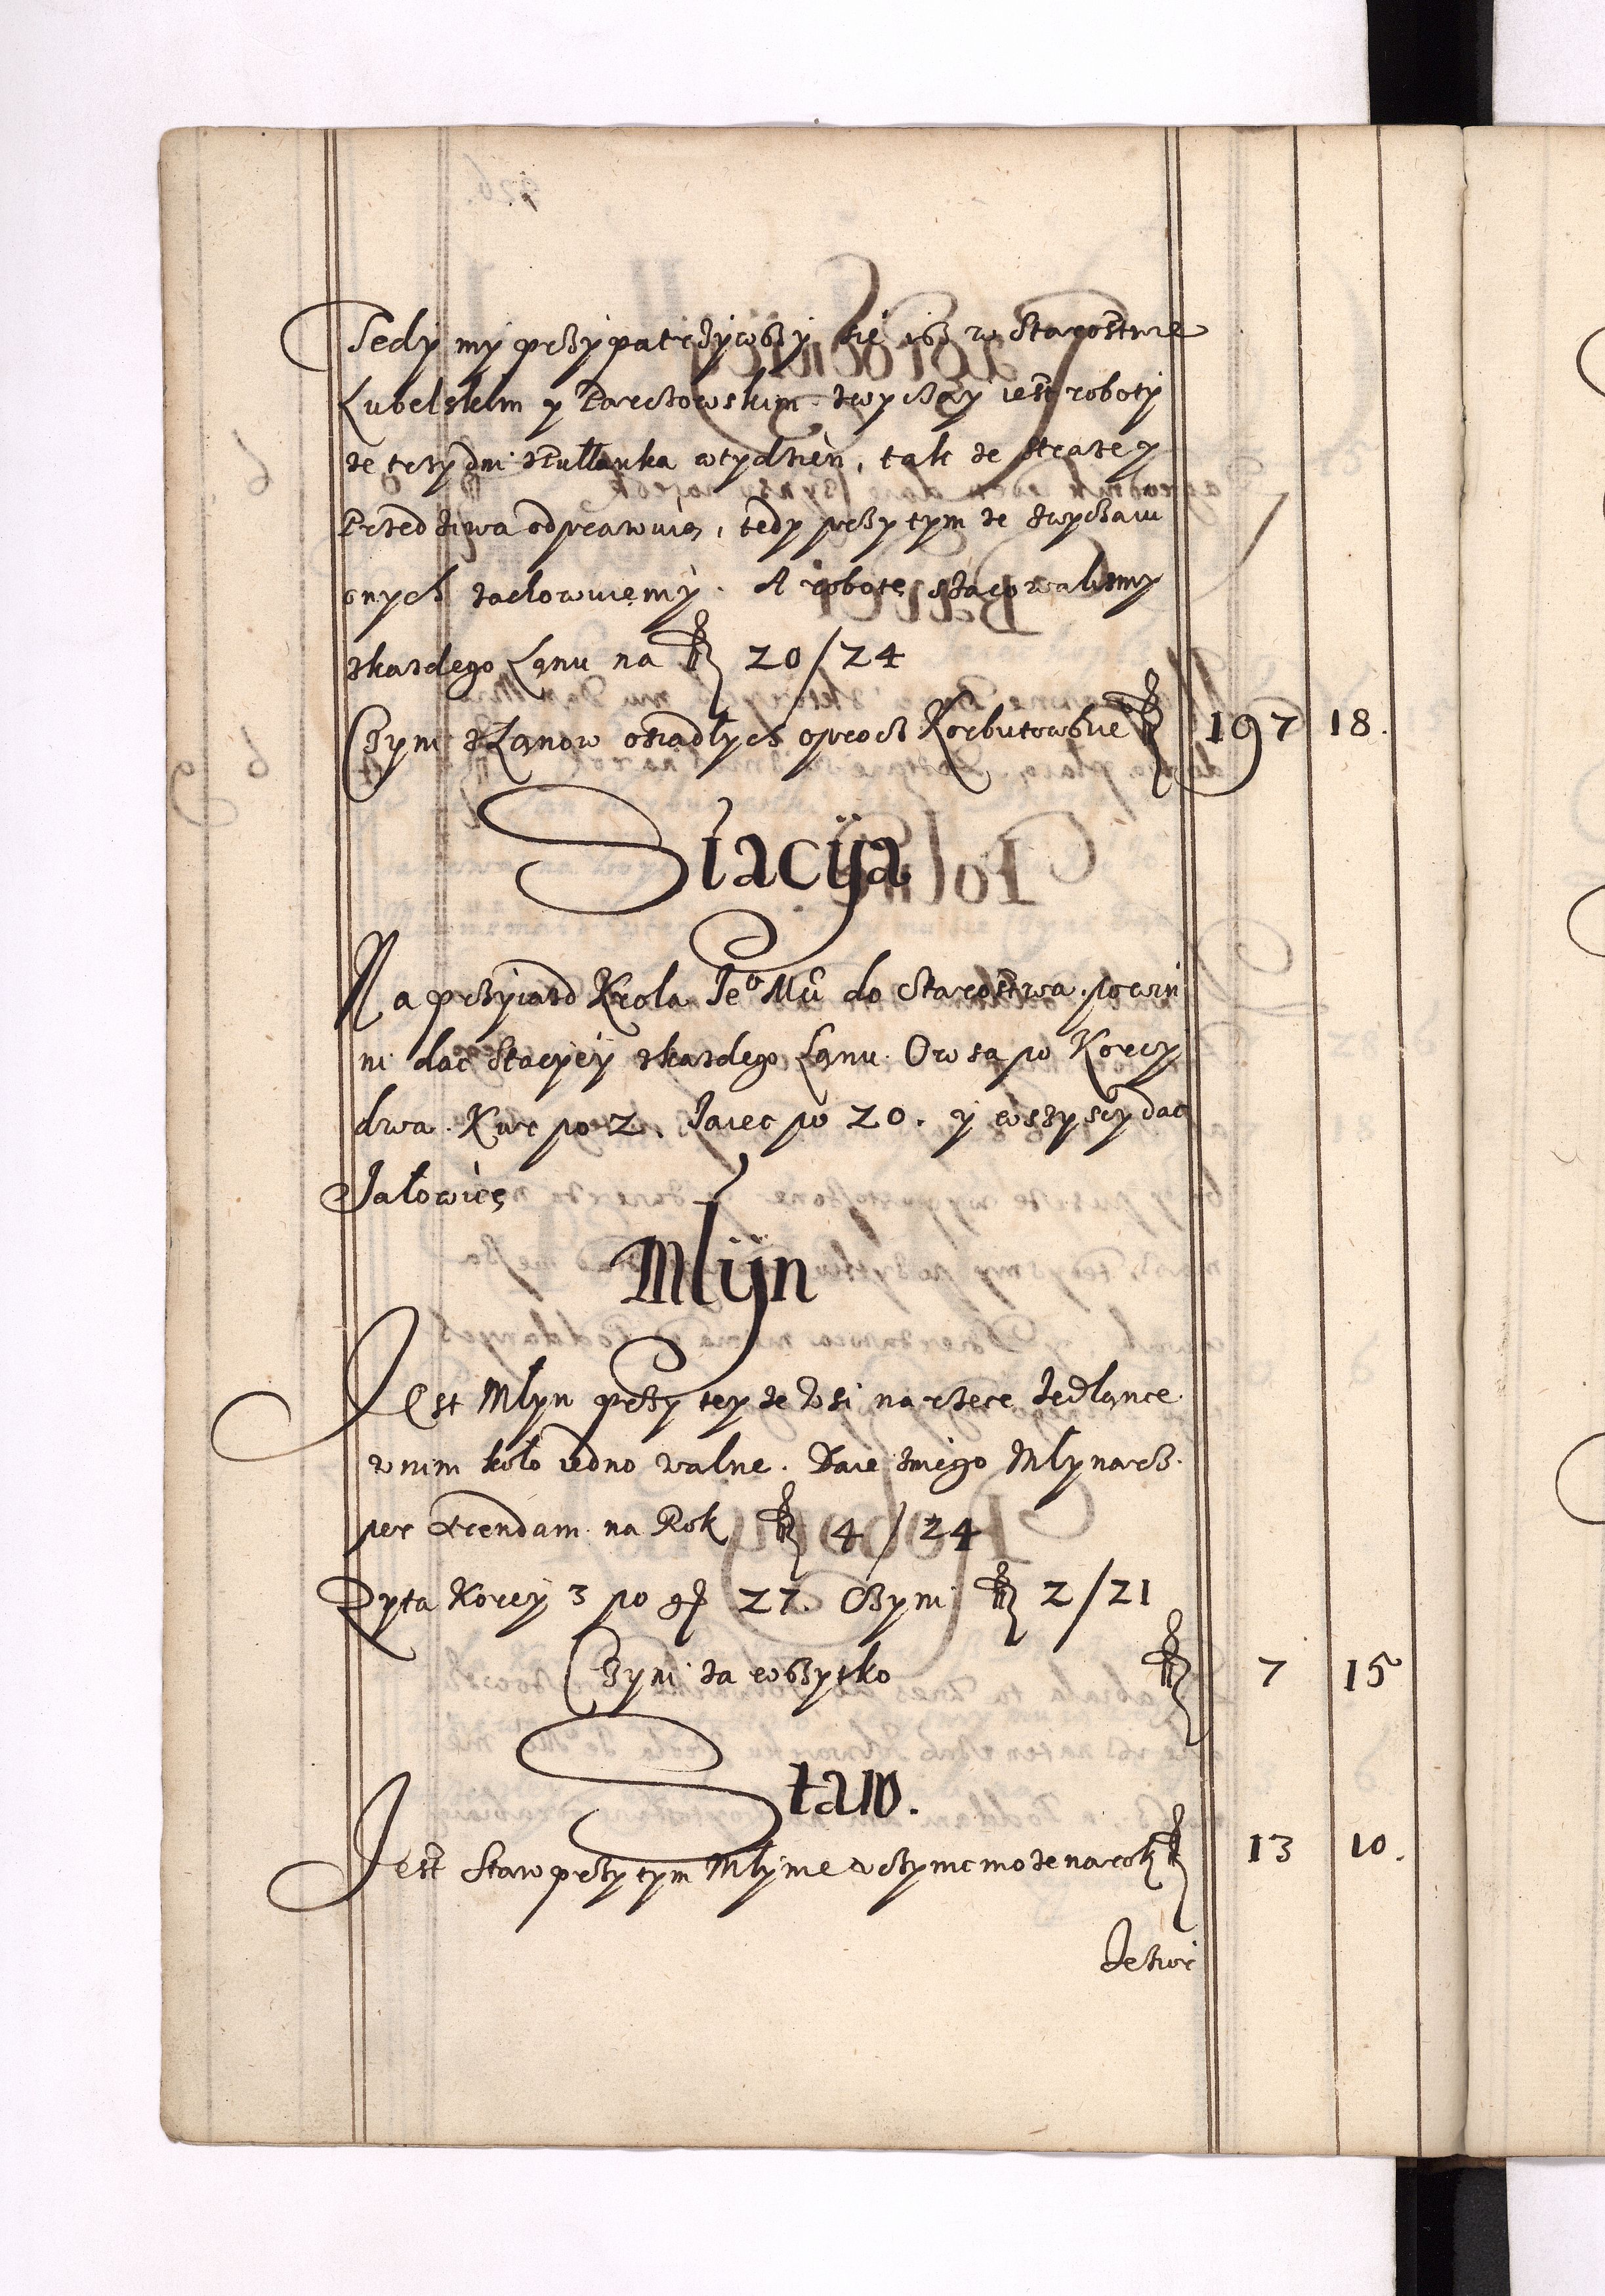 Tedy my przypatrzywszy się isz w Starostwie
Lubelskim y Parczowskim zwyczay iest roboty
ze trzy dni zPułłanka wtydzień, tak ze strażey
Przedziwa odprawuią, tedy przy tym ze zwyczaiu
onych zachowuięmy. A robotę szacowalismy
zkazdego Łanu na fl 20/24
Czyni zŁanow osiadłych oprocz Korbutowskie fl 197 18.
Stacija
Na przyiazd Krola Je⁰ Mći do Starostwa powin
ni dać Stacyey zkazdego Łanu Owsa po Korcy
dwa. Kur po 2. Jaiec po 20. y wszyscy dac
Jałowicę
Mlÿn
Jest Młyn przy tey ze Wsi na rzece Jedlance
wnim koło iedno walne. Daie zniego Młynarz
per Arendam na Rok fl 4/24
Zyta Korcy 3 po gr 27. Czyni fl 2/21
Czyni za wszytko fl 7 15
Staw.
Jest Staw przy tym Młynie uczynic może na rok fl 13 10.